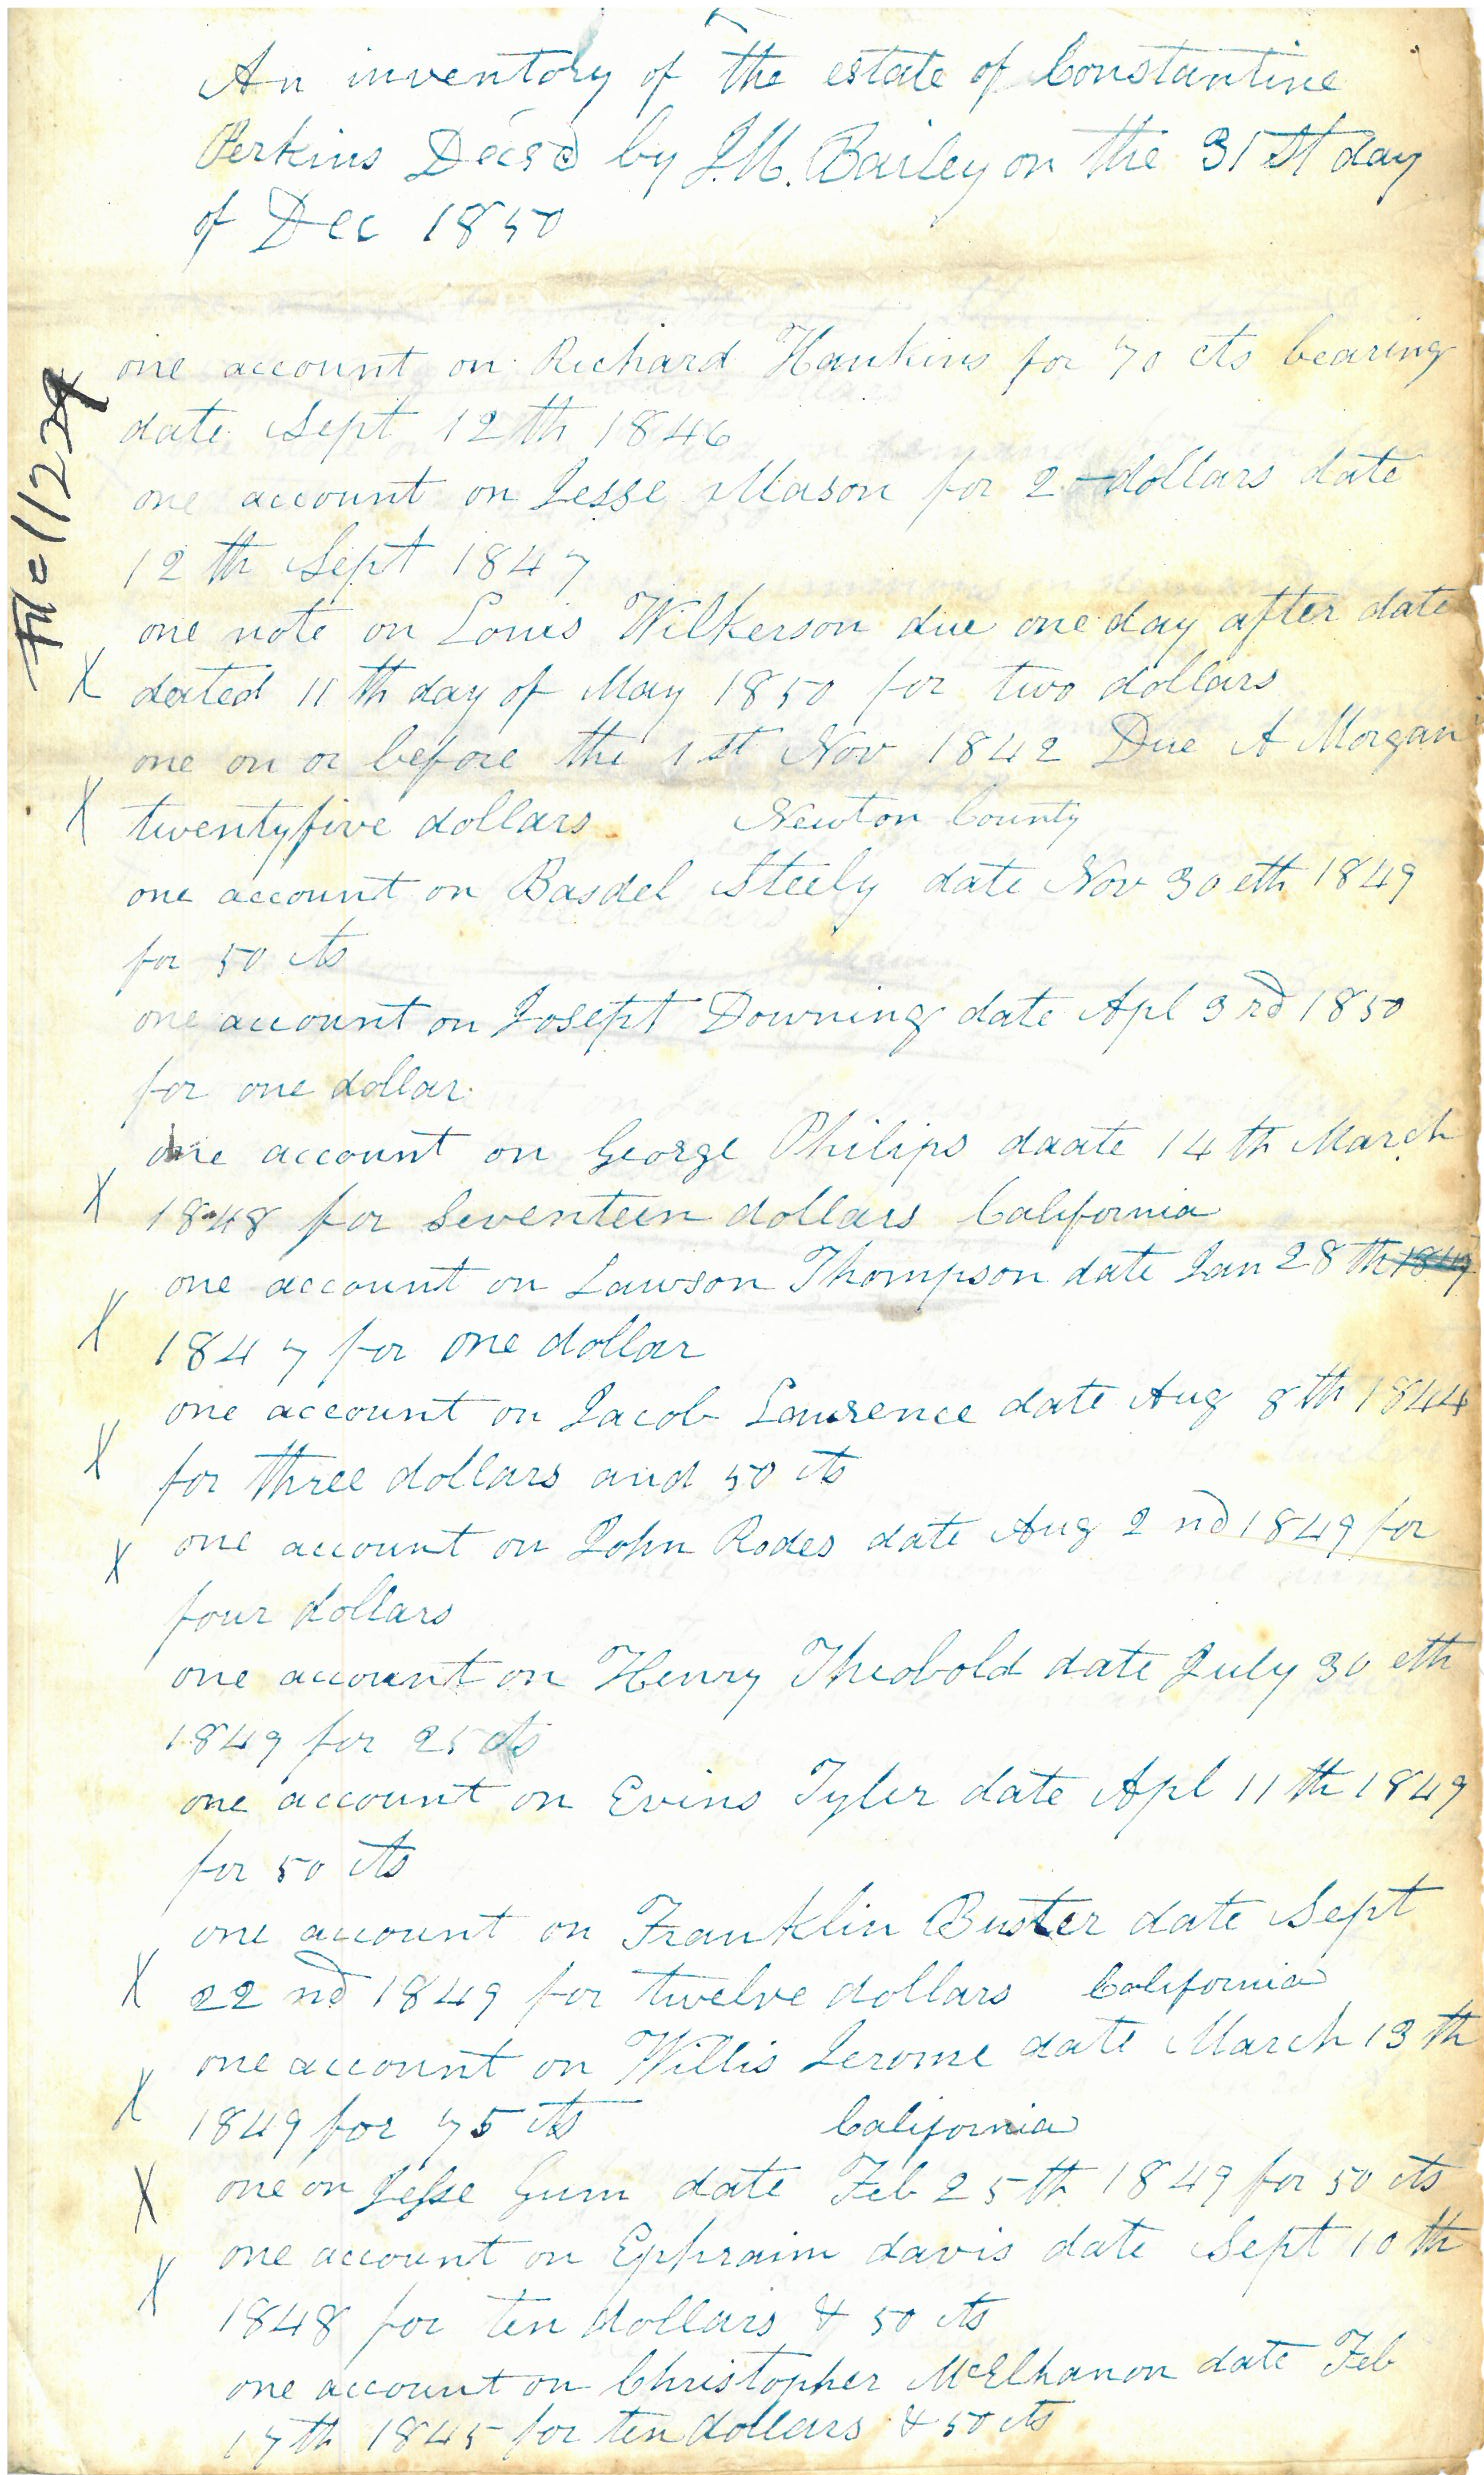 An inventory of the estate of Constantine
Perkins Decsd by J.M. Bailey on the 31st day
of Dec 1850
File 1122
one account on Richard Hankins for 70 cts bearing
date Sept 12th 1846
one account on Jesse Mason for 2 dollars date
12th Sept 1847
one note on Louis Wilkerson due one day after date
X dated 11th day of May 1850 for two dollars
one on or before the 1st Nov 1842 Due A Morgan
X twentyfive dollars Newton County
one account on Basdel Steely date Nov 30eth 1849
for 50 cts
one account on Josept Downing date Apl 3rd 1850
for one dollar
one account on George Philips daate 14th March
X 1848 for Seventeen dollars California
one account on Lawson Thompson date Jan 28th 1847
X 1847 for one dollar
one account on Jacob Lawrence date Aug 8th 1844
X for three dollars and 50 cts
X one account on John Rodes date Aug 2nd 1849 for
four dollars
one account on Henry Theobold date July 30eth
1849 for 25 cts
one account on Evins Tyler date Apl 11th 1849
for 50 cts
one account on Franklin Buster date Sept
X 22nd 1849 for twelve dollars California
one account on Willis Jerome date March 13th
X 1849 for 75 cts California
X one on Jesse Gum date Feb 25th 1849 for 50 cts
one account on Ephraim davis date Sept 10th
X 1848 for ten dollars & 50 cts
one account on Christopher McElhanon date Feb
17th 1845 for ten dollars & 50 cts